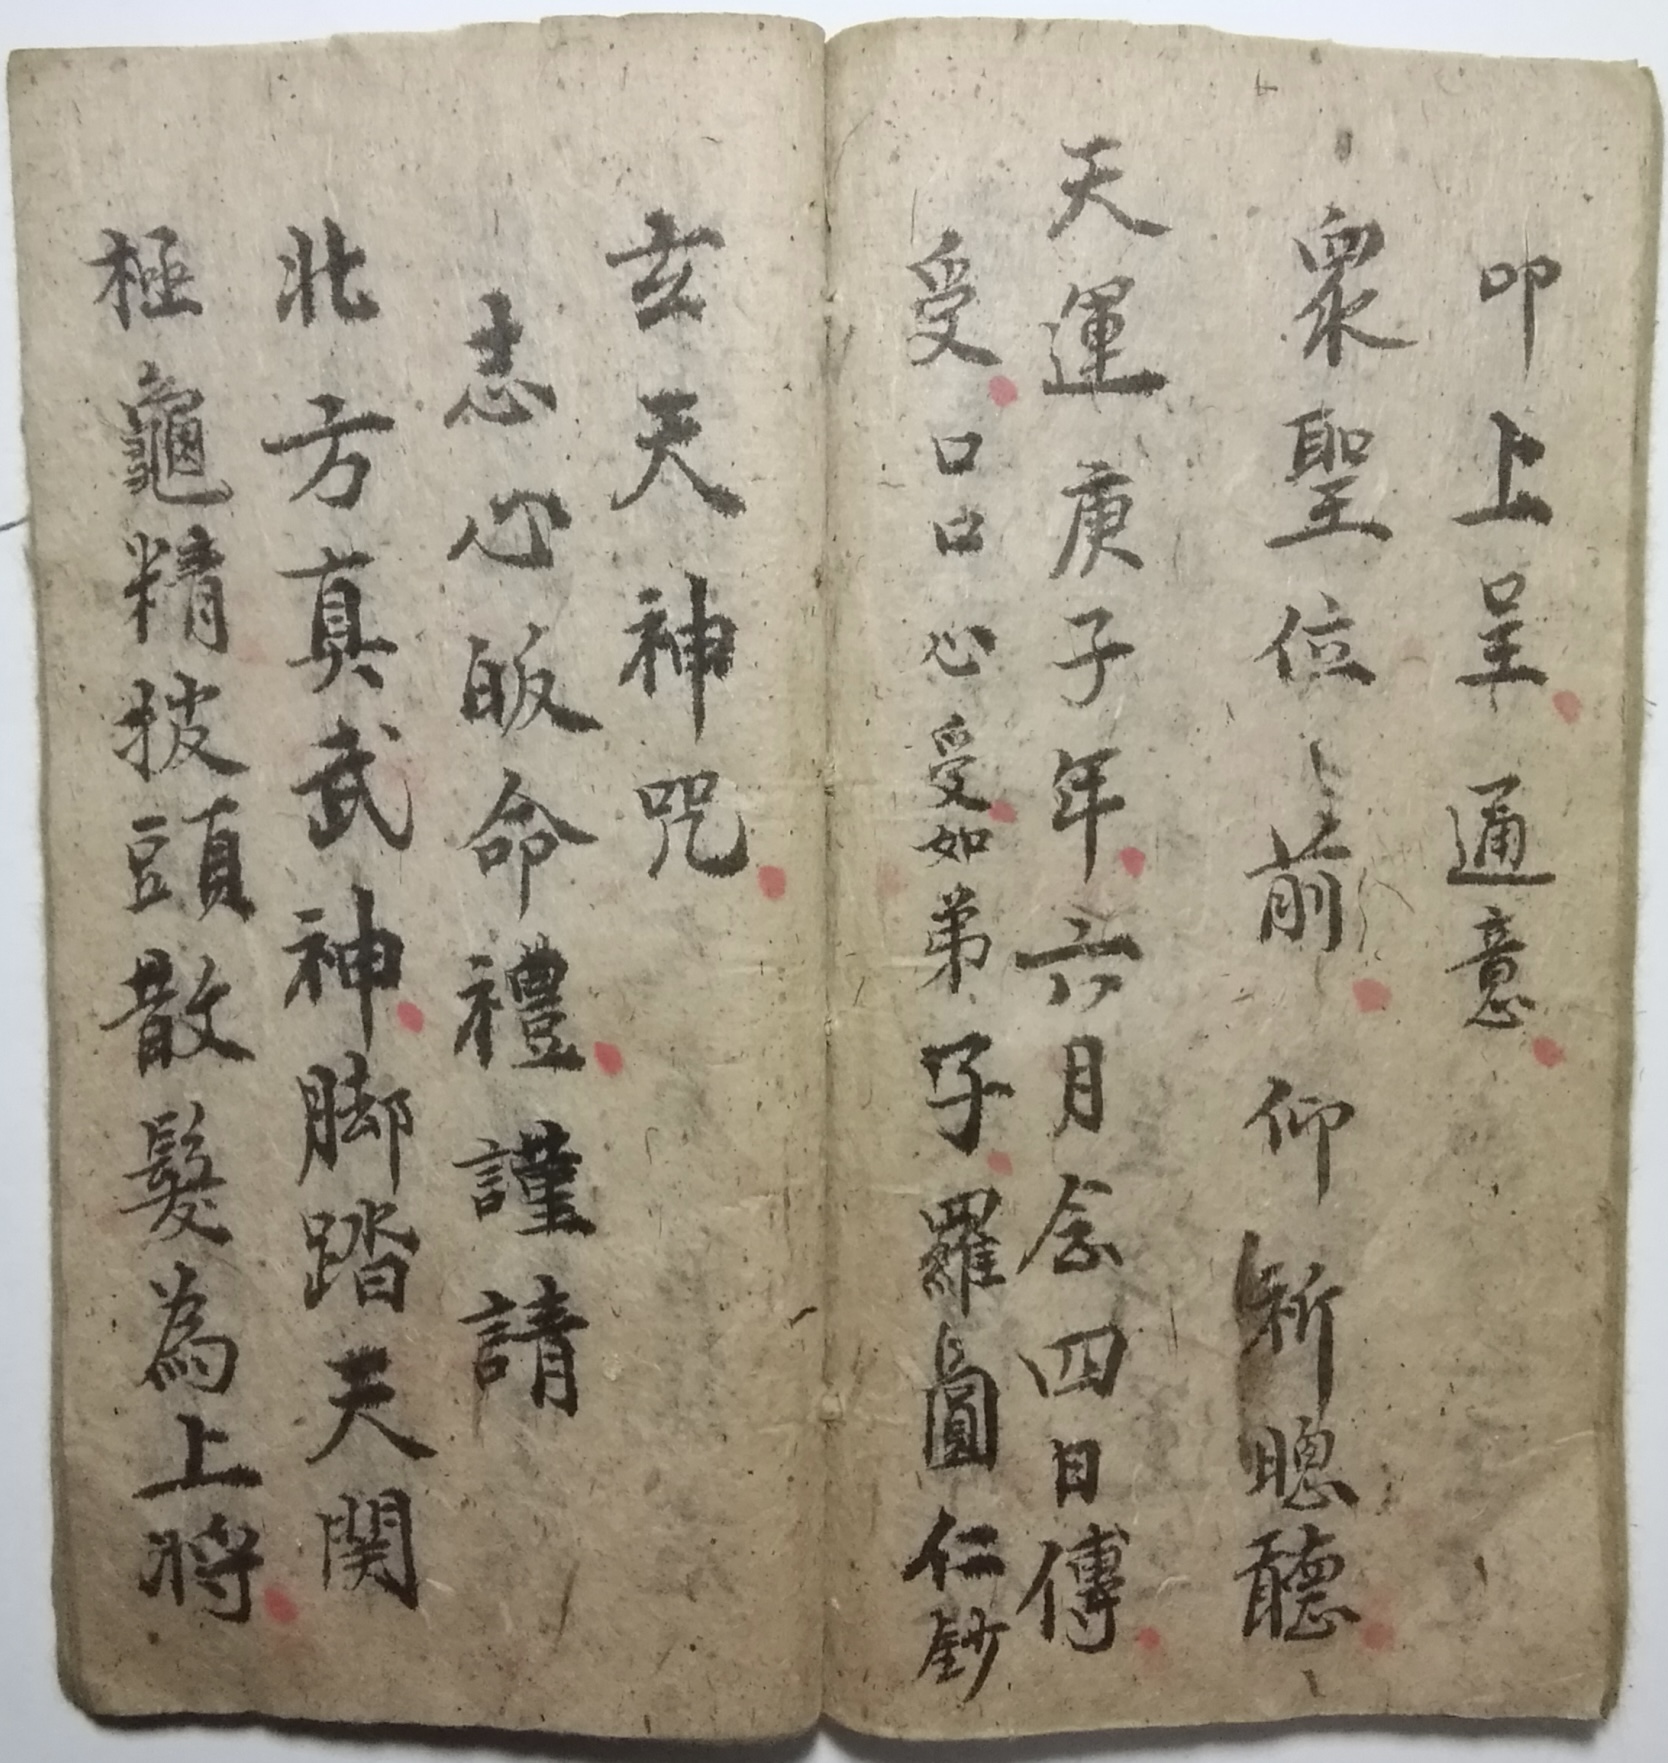 叩上呈通意
眾聖位前仰祈聰聽
天運庚子年六月念四日傳
受口口心受如弟子羅圓仁鈔
玄天神咒
志心皈命禮謹請
北方真武神脚踏天関
極龜精披頭散髮為上將